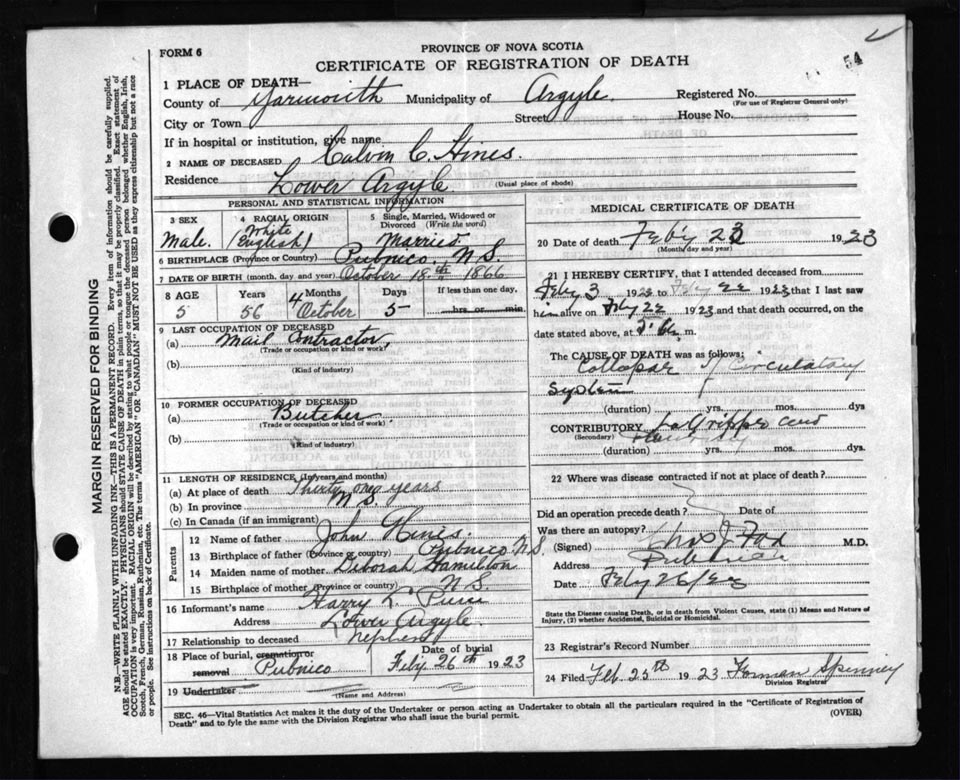 FORM 6
PROVINCE OF NOVA SCOTIA
CERTIFICATE OF REGISTRATION OF DEATH
54
1 PLACE OF DEATH—
County of Yarmouth Municipality of Argyle. Registered No.
(For use of Registrar General only)
City or Town Street House No.
If in hospital or institution, give name
2 NAME OF DECEASED Calvin C. Hines.
Residence Lower Argyle. (Usual place of abode)
PERSONAL AND STATISTICAL INFORMATION
3 SEX
Male.
4 RACIAL ORIGIN
White
(English)
5 Single, Married, Widowed or Divorced (Write the word)
Married
6 BIRTHPLACE (Province or Country) Pubnico, N.S.
7 DATE OF BIRTH (month, day and year) October 18th 1866
8 AGE Years Months Days If less than one day,
5 56 4 October 5 hrs. or min.
9 LAST OCCUPATION OF DECEASED
(a) Mail Contractor,
(Trade or occupation or kind or work)
(b)
(Kind of industry)
10 FORMER OCCUPATION OF DECEASED
(a) Butcher
(Trade or occupation or kind or work)
(b)
(Kind of industry)
11 LENGTH OF RESIDENCE (In years and months)
(a) At place of death Thirty one years
(b) In province N.S.
(c) In Canada (if an immigrant)
Parents
12 Name of father John Hines.
13 Birthplace of father (Province or country) Pubnico N.S.
14 Maiden name of mother Deborah Hamilton
15 Birthplace of mother (Province or country) N.S.
16 Informant's name Harry K.
Address Lower Argyle.
17 Relationship to deceased nephew
18 Place of burial, cremation or removal Pubnico
Date of burial
Feby 26th 1923
19 Undertaker
(Name and Address)
MEDICAL CERTIFICATE OF DEATH
20 Date of death Feby 23 1923
(Month day and year)
21 I HEREBY CERTIFY, that I attended deceased from
Feby 3 1923 to Feby 22 1923 that I last saw
him alive on Feby 22 1923 and that death occurred, on the
date stated above, at m.
The CAUSE OF DEATH was as follows:
Collapse of Circulatory
System
(duration) yrs. mos. dys
CONTRIBUTORY La Grippe and
(Secondary)
(duration) yrs. mos. dys.
22 Where was disease contracted if not at place of death?
Did an operation precede death? Date of
Was there an autopsy?
(Signed) J Fox M.D.
Address Pubnico
Date Feby 26/23
State the Disease causing Death, or in death from Violent Causes, state (1) Means and Nature of
Injury, (2) whether Accidental, Suicidal or Homicidal.
23 Registrar's Record Number
24 Filed Feb. 25th 1923 Forman Spinney
Division Registrar
SEC. 46—Vital Statistics Act makes it the duty of the Undertaker or person acting as Undertaker to obtain all the particulars required in the "Certificate of Registration of
Death" and to fyle the same with the Division Registrar who shall issue the burial permit. (OVER)
MARGIN RESERVED FOR BINDING
N.B.—WRITE PLAINLY WITH UNFADING INK—THIS IS A PERMANENT RECORD. Every item of information should be carefully supplied.
AGE should be stated EXACTLY. PHYSICIANS should STATE CAUSE OF DEATH in plain terms, so that it may be properly classified. Exact statement of
OCCUPATION is very important. RACIAL ORIGIN will be described by stating to what people or tongue the deceased person belonged whether English, Irish,
Scotch, French, German, Russian, Ruthenian, etc. The terms "AMERICAN" OR "CANADIAN" MUST NOT BE USED as they express citizenship but not a race
or people. See instructions on back of Certificate.